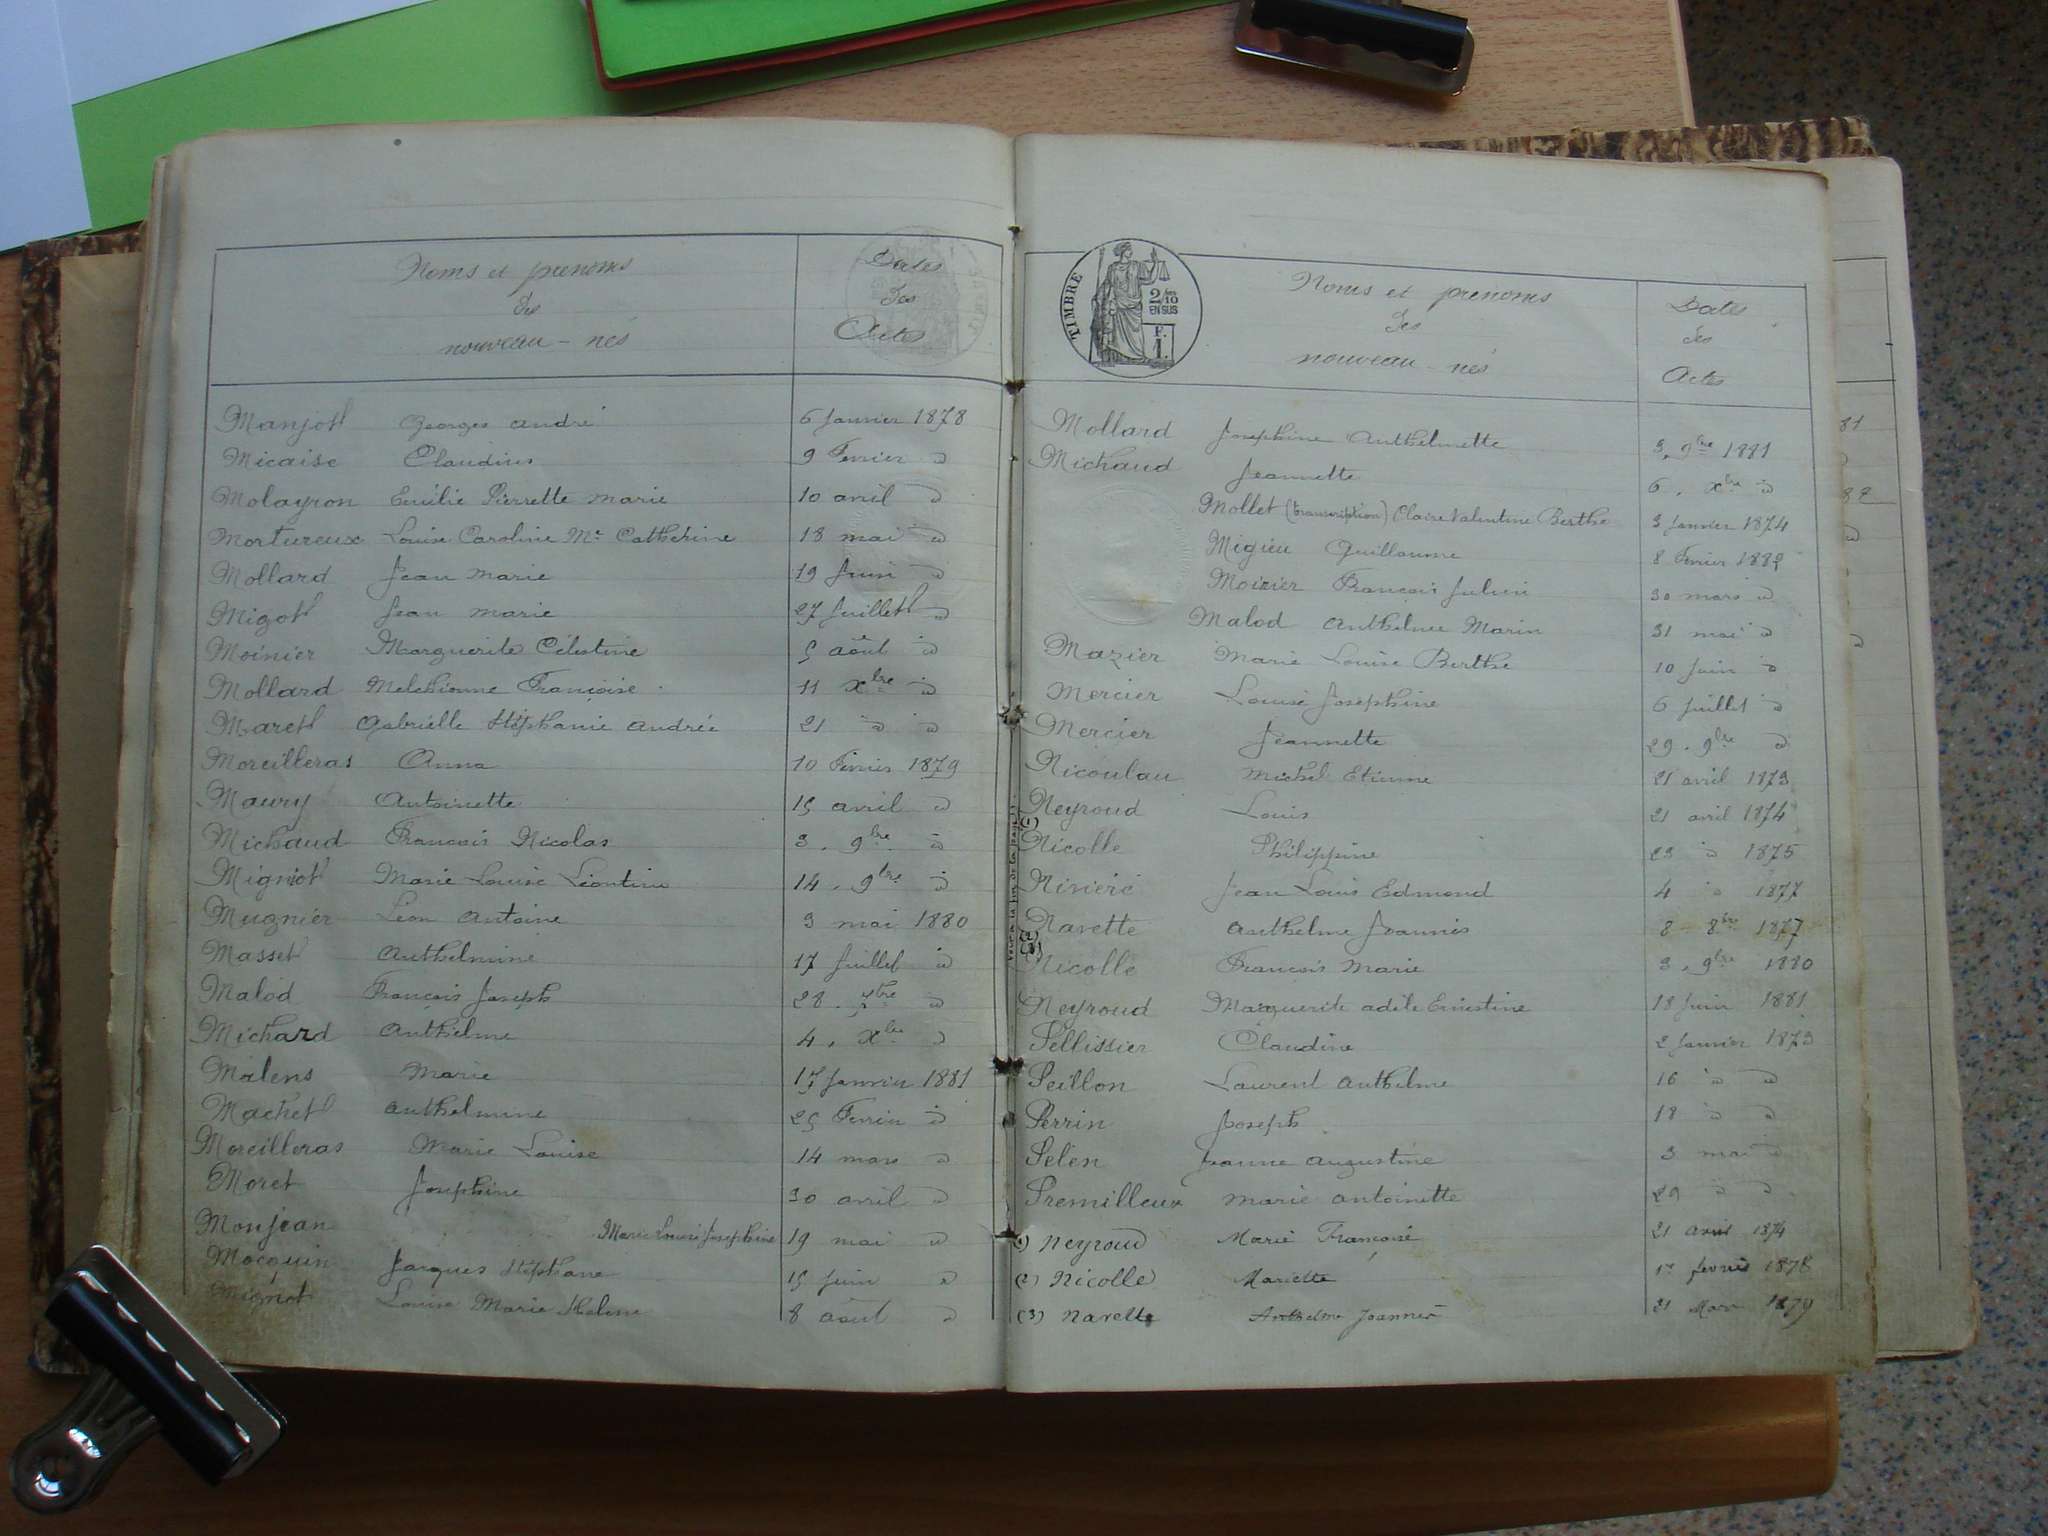 Noms et prenoms
des
nouveau-nés
Dates
des
Actes
Manjot Georges André 6 Janvier 1878
Micaise Claudius 9 Fevrier d
Molayron Emélie Pierrette Marie 10 avril d
Mortureux Louise Caroline Me Cathérine 18 mai d
Mollard Jean Marie 19 Juin d
Migot Jean Marie 27 Juillet d
Moinier Marguerite Célestine 5 août d
Mollard Melchionne Françoise 11 xbre d
Maret Gabriélle Stéphanie Andrée 21 d d
Moreilleras Anna 10 Fevrier 1879
Maury Antoinette 15 avril d
Michaud François Nicolas 3. 9bre d
Mignot Marie Louise Léontine 14. 9bre d
Mugnier Léon Antoine 3 mai 1880
Masset Anthelmine 17 Juillet d
Malod François Joseph 28. 7bre d
Michard Anthelme 4. xbre d
Malens Marie 17 Janvier 1881
Machet Anthelmine 25 Fevrier d
Moreilleras Marie Louise 14 mars d
Moret Joséphine 30 avril d
Monjean Marie Louise Joséphine 19 mai d
Mocquin Jacques Stéphane 15 Juin d
Mignot Louise Marie 8 août d
TIMBRE
2/10
EN SUS
F.
1.
Noms et prenoms
des
nouveau-nés
Dates
des
Actes
Mollard Joséphine Anthelmette 3. 9bre 1881
Michaud Jeannette 6. xbre d
Mollet (transcription) Claire Valentine Berthe 3 Janvier 1874
Migieu Guillaume 8 Fevrier 1882
Moirier François Julien 30 mars d
Malod Anthelmee Marin 31 mai d
Mazier Marie Louise Berthe 10 Juin d
Mercier Louise Joséphine 6 Juillet d
Mercier Jeannette 29. 9bre d
Nicoulau Michel Etienne 21 avril 1873
Neyroud Louis 21 avril 1874
(1)
Nicolle Philippine 23 d 1875
Niviere Jean Louis Edmond 4 d 1877
Navette Anthelme Joannès 8 8bre 1877
(2)
(3)
Nicolle François Marie 3. 9bre 1880
Neyroud Marguerite adèle Ernestine 18 Juin 1881
Pellissier Claudine 2 Janvier 1873
Peillon Laurent Anthelme 16 d d
Perrin Joseph 18 d d
Pelen Jeanne Augustine 3 mai d
Premilleux Marie Antoinette 29 d d
(1) Neyroud Marie Françoise 21 avril 1874
(2) Nicolle Mariette 17 fevrier 1878
(3) Navette Anthelme Joannès 21 Mars 1879
81
82